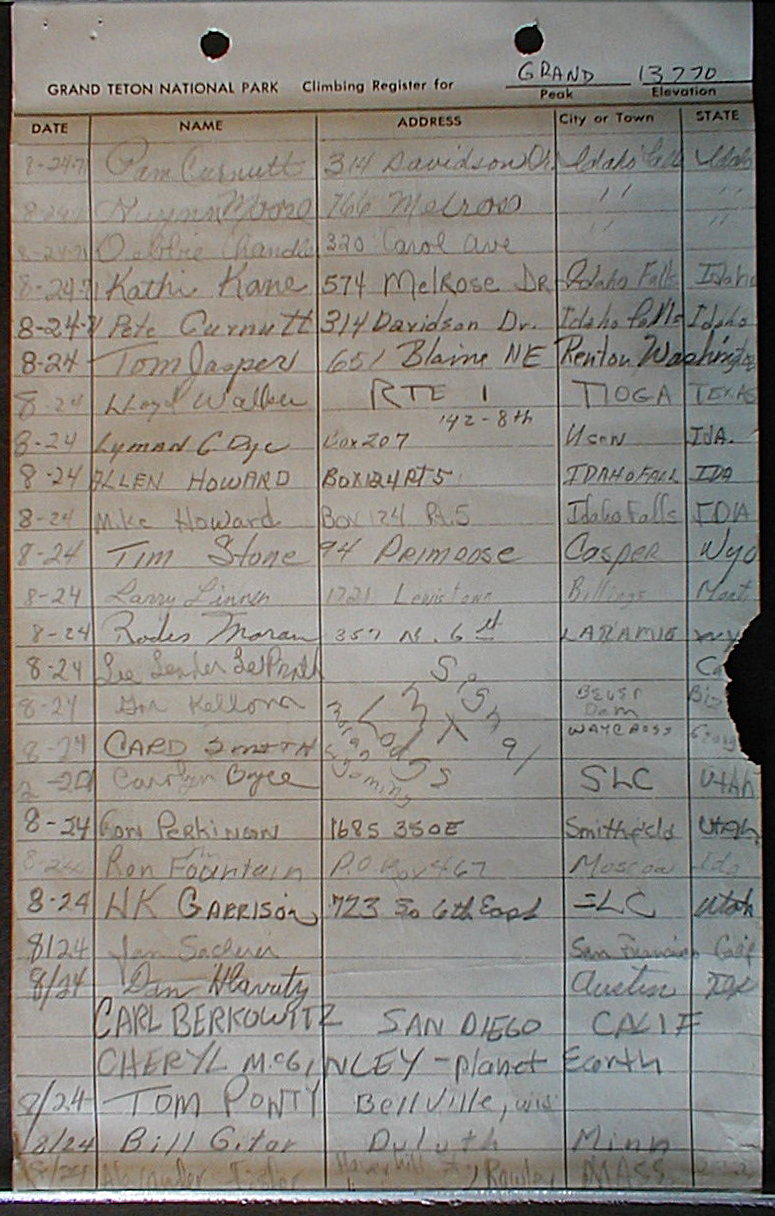 GRAND 13770
GRAND TETON NATIONAL PARK Climbing Register for Peak Elevation
DATE NAME ADDRESS City or Town STATE
8-24-71 Pam Curnutt 314 Davidson Dr. Idaho Falls Idaho
766 Melrose " "
8-24-71 Debbie Chandler 320 Carol Ave " "
8-24-71 Kathi Kane 574 MelRose DR Idaho Falls Idaho
8-24-71 Pete Curnutt 314 Davidson Dr. Idaho Falls Idaho
8-24 Tom Jasper 651 Blaine NE Renton Washington
8-24 Lloyd Walker RTE 1 TIOGA TEXAS
142-8th
8-24 Lyman C Dye Box 207 Ucon IDA.
8-24 ALLEN HOWARD BOX 124 RT 5 IDAHO FALL IDA
8-24 Mike Howard BOX 124 Rt.5 Idaho Falls IDA
8-24 Tim Stone 94 PRIMROSE CASPER Wyo
8-24 Larry Linnen 1721 Lewistown Billings Mont
8-24 Moran 357 N. 6th LARAMIE Wy
8-24
8-24 Kellorn BEVER Dam
8-24 CARD SMITH WAYCROSS
Moran Wyoming
Carolyn Dyce SLC Utah
8-24 RON PERKINSON 1685 350E Smithfield UTAH
Ron Fountain P.O Box 467 Moscow Ida
8-24 HK GARRISON 723 So 6th East SLC Utah
8/24 Jan San Francisco Calif
8/24 Dan Hlavaty Austin TEX
CARL BERKOWITZ SAN DIEGO CALIF
CHERYL McGINLEY - planet Earth
8/24 TOM PONTY Bellville, Wis
8/24 Bill Gitar Duluth Minn
8/24 Alexander Fisler Haverhill St, Rowley MASS.